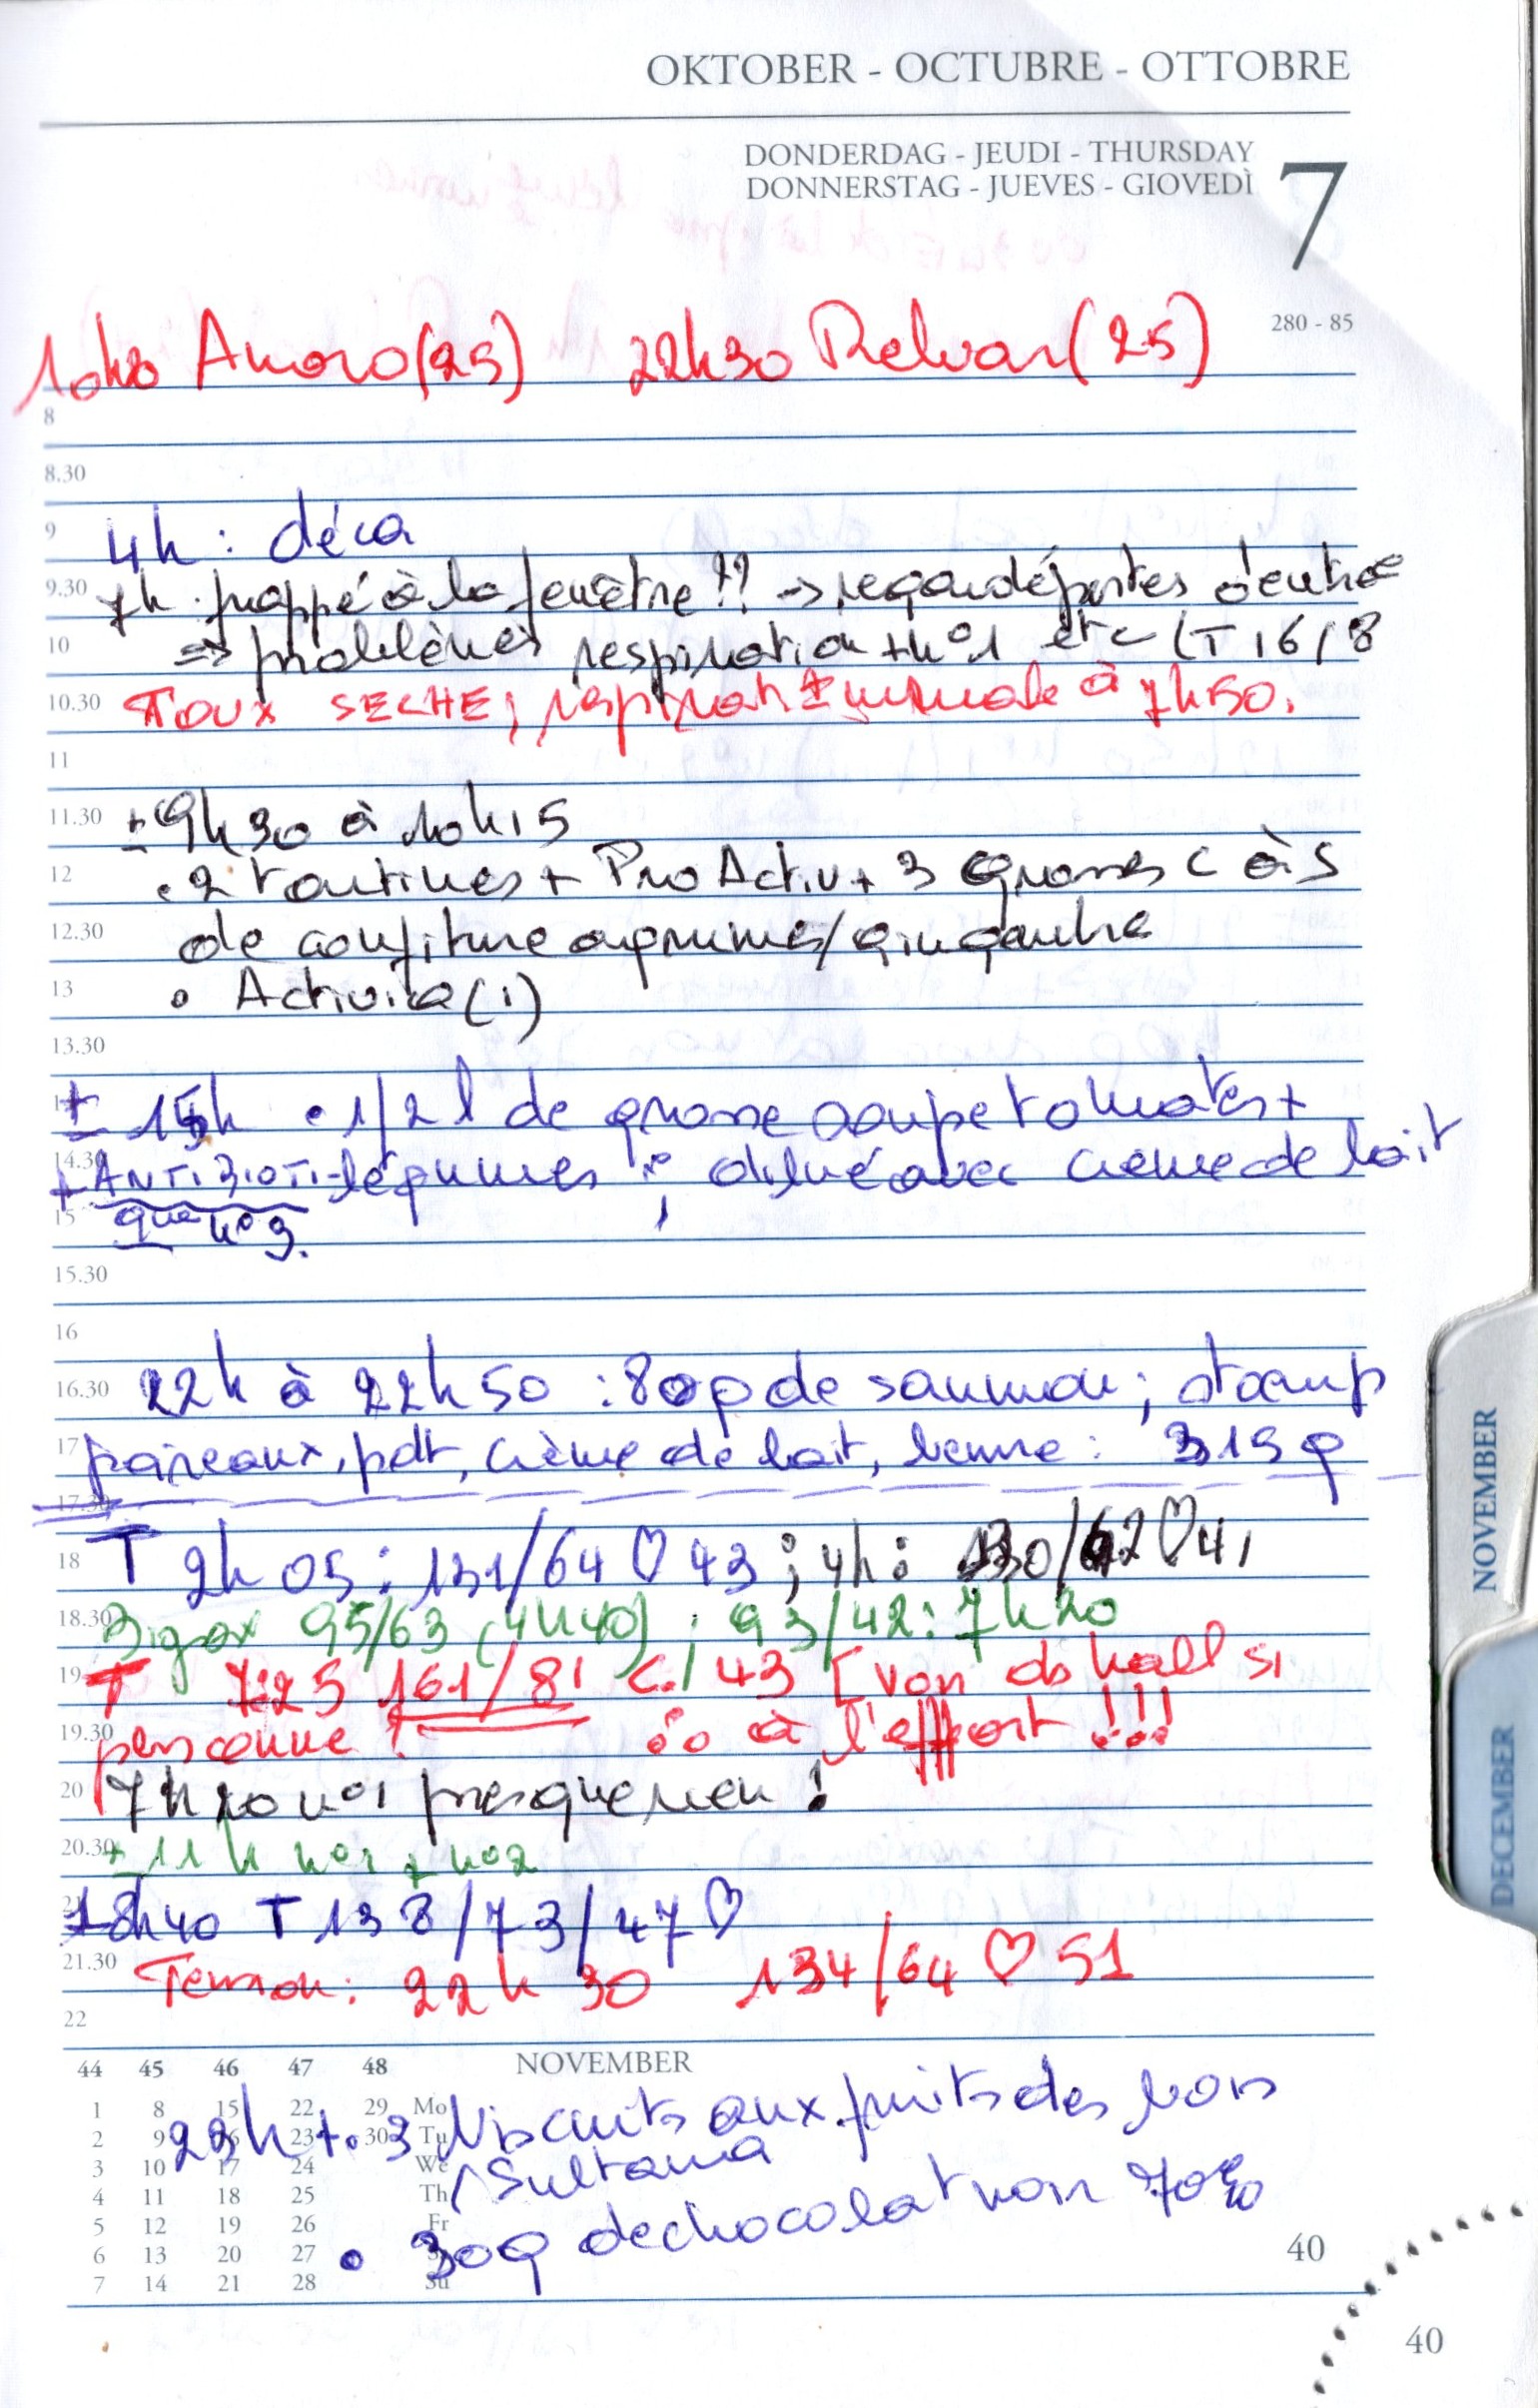 OKTOBER - OCTUBRE - OTTOBRE
DONDERDAG - JEUDI - THURSDAY
DONNERSTAG - JUEVES - GIOVEDÌ
7
280 - 85
(25) 22h30 Relvar (25)
8
8.30
9 4h : déca
9.30 7h frappé à la fenêtre !! → regardé portes d'entrée
10 ⇒ problèmes respiration n°1 etc (T 16/8
10.30 TOUX SECHE, respirat± normale à 7h50.
11
11.30 ± 9h30 à 10h15
12 • 2 tartines + ProActiv + 3 grosses C à S
12.30 de confiture agrumes/gingembre
13 • Activia (1)
13.30
± 15h • 1/2 l de grosse soupe tomates +
14.30 + ANTIBIOTI- légumes ; dilué avec crème de lait
15 que n°3.
15.30
16
16.30 22h à 22h50 : 80g de saumon ; stoemp
17 poireaux, pdt, crème de lait, beurre : 315 g
17.30
18 T 2h05 : 131/64 ♡ 43 ; 4h : 130/62 ♡ 41
18.30 95/63 (4h40) ; 93/42 : 7h20
19 T 7:25 161/81 43 [voir ds hall si
19.30 personne ! à l'effort !!!
20 7h20 n°1 presque rien !
20.30 ± 11h n°1 + n°2
21 18h40 T 138/73/47 ♡
21.30 Tension : 22h30 134/64 ♡ 51
22
44 45 46 47 48 NOVEMBER
1 8 15 22 29 Mo
2 9 16 23 30 Tu
3 10 17 24 We
4 11 18 25 Th
5 12 19 26 Fr
6 13 20 27
7 14 21 28 Su
23h + • 3 biscuits aux fruits des bois
/Sultana
• 30g de chocolat noir 70%
40
40
NOVEMBER
DECEMBER